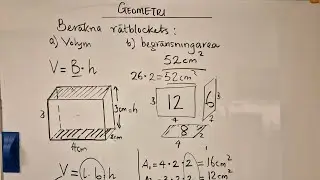 GEOMETRI
Beräkna rätblockets:
a) Volym
b) begränsningarea
V = B · h
52 cm²
26 · 2 = 52 cm²
3
3cm = h
2cm
4cm
3
12
4
3
6
2
4
8
V = l · b · h
A₁ = 4 · 2 · 2 = 16 cm²
= 12 cm²